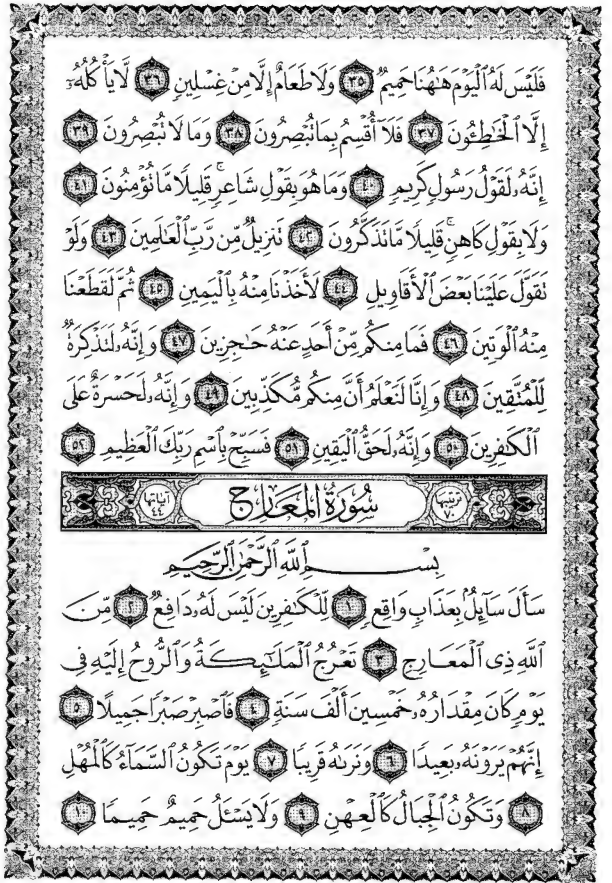 فَلَيْسَ لَهُ ٱلْيَوْمَ هَٰهُنَا حَمِيمٌ ٣٥ وَلَا طَعَامٌ إِلَّا مِنْ غِسْلِينٍ ٣٦ لَّا يَأْكُلُهُۥٓ
إِلَّا ٱلْخَٰطِـُٔونَ ٣٧ فَلَآ أُقْسِمُ بِمَا تُبْصِرُونَ ٣٨ وَمَا لَا تُبْصِرُونَ ٣٩
إِنَّهُۥ لَقَوْلُ رَسُولٍ كَرِيمٍ ٤٠ وَمَا هُوَ بِقَوْلِ شَاعِرٍ ۚ قَلِيلًا مَّا تُؤْمِنُونَ ٤١
وَلَا بِقَوْلِ كَاهِنٍ ۚ قَلِيلًا مَّا تَذَكَّرُونَ ٤٢ تَنزِيلٌ مِّن رَّبِّ ٱلْعَٰلَمِينَ ٤٣ وَلَوْ
تَقَوَّلَ عَلَيْنَا بَعْضَ ٱلْأَقَاوِيلِ ٤٤ لَأَخَذْنَا مِنْهُ بِٱلْيَمِينِ ٤٥ ثُمَّ لَقَطَعْنَا
مِنْهُ ٱلْوَتِينَ ٤٦ فَمَا مِنكُم مِّنْ أَحَدٍ عَنْهُ حَٰجِزِينَ ٤٧ وَإِنَّهُۥ لَتَذْكِرَةٌ
لِّلْمُتَّقِينَ ٤٨ وَإِنَّا لَنَعْلَمُ أَنَّ مِنكُم مُّكَذِّبِينَ ٤٩ وَإِنَّهُۥ لَحَسْرَةٌ عَلَى
ٱلْكَٰفِرِينَ ٥٠ وَإِنَّهُۥ لَحَقُّ ٱلْيَقِينِ ٥١ فَسَبِّحْ بِٱسْمِ رَبِّكَ ٱلْعَظِيمِ ٥٢
ترتيبها ٧٠ سُورَةُ المَعَارِج آياتها ٤٤
بِسْمِ ٱللَّهِ ٱلرَّحْمَٰنِ ٱلرَّحِيمِ
سَأَلَ سَآئِلٌۢ بِعَذَابٍ وَاقِعٍ ١ لِّلْكَٰفِرِينَ لَيْسَ لَهُۥ دَافِعٌ ٢ مِّنَ
ٱللَّهِ ذِى ٱلْمَعَارِجِ ٣ تَعْرُجُ ٱلْمَلَٰٓئِكَةُ وَٱلرُّوحُ إِلَيْهِ فِى
يَوْمٍ كَانَ مِقْدَارُهُۥ خَمْسِينَ أَلْفَ سَنَةٍ ٤ فَٱصْبِرْ صَبْرًا جَمِيلًا ٥
إِنَّهُمْ يَرَوْنَهُۥ بَعِيدًا ٦ وَنَرَىٰهُ قَرِيبًا ٧ يَوْمَ تَكُونُ ٱلسَّمَآءُ كَٱلْمُهْلِ
٨ وَتَكُونُ ٱلْجِبَالُ كَٱلْعِهْنِ ٩ وَلَا يَسْـَٔلُ حَمِيمٌ حَمِيمًا ١٠